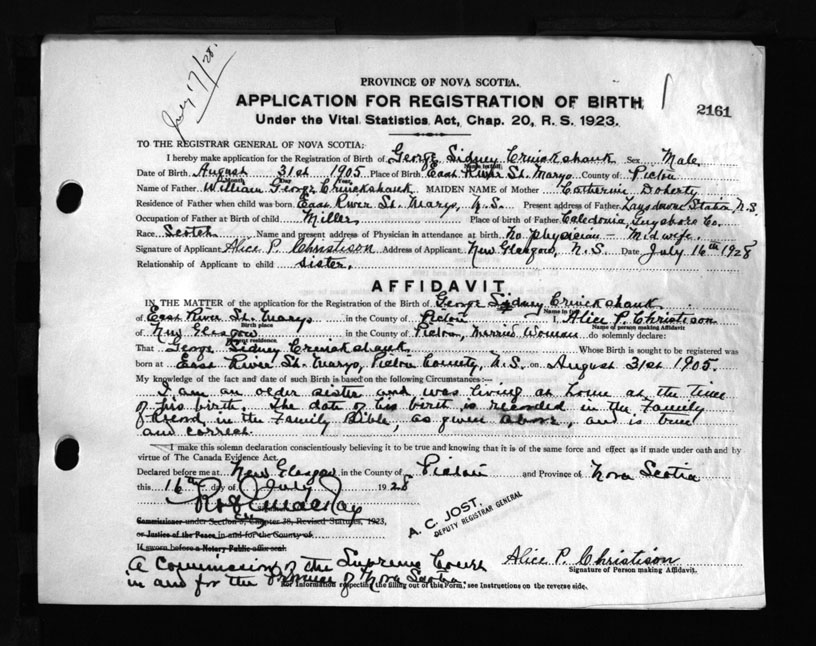 July 17/28.
PROVINCE OF NOVA SCOTIA.
APPLICATION FOR REGISTRATION OF BIRTH
2161
Under the Vital Statistics Act, Chap. 20, R. S. 1923.
TO THE REGISTRAR GENERAL OF NOVA SCOTIA:
I hereby make application for the Registration of Birth of George Sidney Cruickshank Sex Male
Date of Birth August 31st 1905 Place of Birth East River St. Marys County of Pictou
Name of Father William George Cruickshank MAIDEN NAME of Mother Catherine Doherty
Residence of Father when child was born East River St. Marys, N.S. Present address of Father Lansdowne Station N.S.
Occupation of Father at Birth of child Miller Place of birth of Father Caledonia, Guysboro Co.
Race Scotch Name and present address of Physician in attendance at birth No physician - Midwife.
Signature of Applicant Alice P. Christison Address of Applicant New Glasgow, N.S. Date July 16th 1928
Relationship of Applicant to child sister.
AFFIDAVIT
IN THE MATTER of the application for the Registration of the Birth of George Sidney Cruickshank
Name in full
of East River St. Marys in the County of Pictou I, Alice P. Christison
Birth place Name of person making Affidavit
of New Glasgow in the County of Pictou, Married Woman do solemnly declare:
Present residence
That George Sidney Cruickshank Whose Birth is sought to be registered was
born at East River St. Marys, Pictou County, N.S. on August 31st 1905.
My knowledge of the fact and date of such Birth is based on the following Circumstances:—
I am an older sister and was living at home at the time
of his birth. The date of his birth is recorded in the Family
Record in the Family Bible, as given above, and is true
and correct.
I make this solemn declaration conscientiously believing it to be true and knowing that it is of the same force and effect as if made under oath and by
virtue of The Canada Evidence Act.
Declared before me at New Glasgow in the County of Pictou and Province of Nova Scotia
this 16th day of July 1928
Commissioner under Section 6, Chapter 38, Revised Statutes, 1923,
or Justice of the Peace in and for the County of
If sworn before a Notary Public affix seal
A. C. JOST,
DEPUTY REGISTRAR GENERAL
A Commission of the Supreme Court
in and for the Province of Nova Scotia.
Alice P. Christison
Signature of Person making Affidavit.
For Information respecting the filling out of this Form, see Instructions on the reverse side.